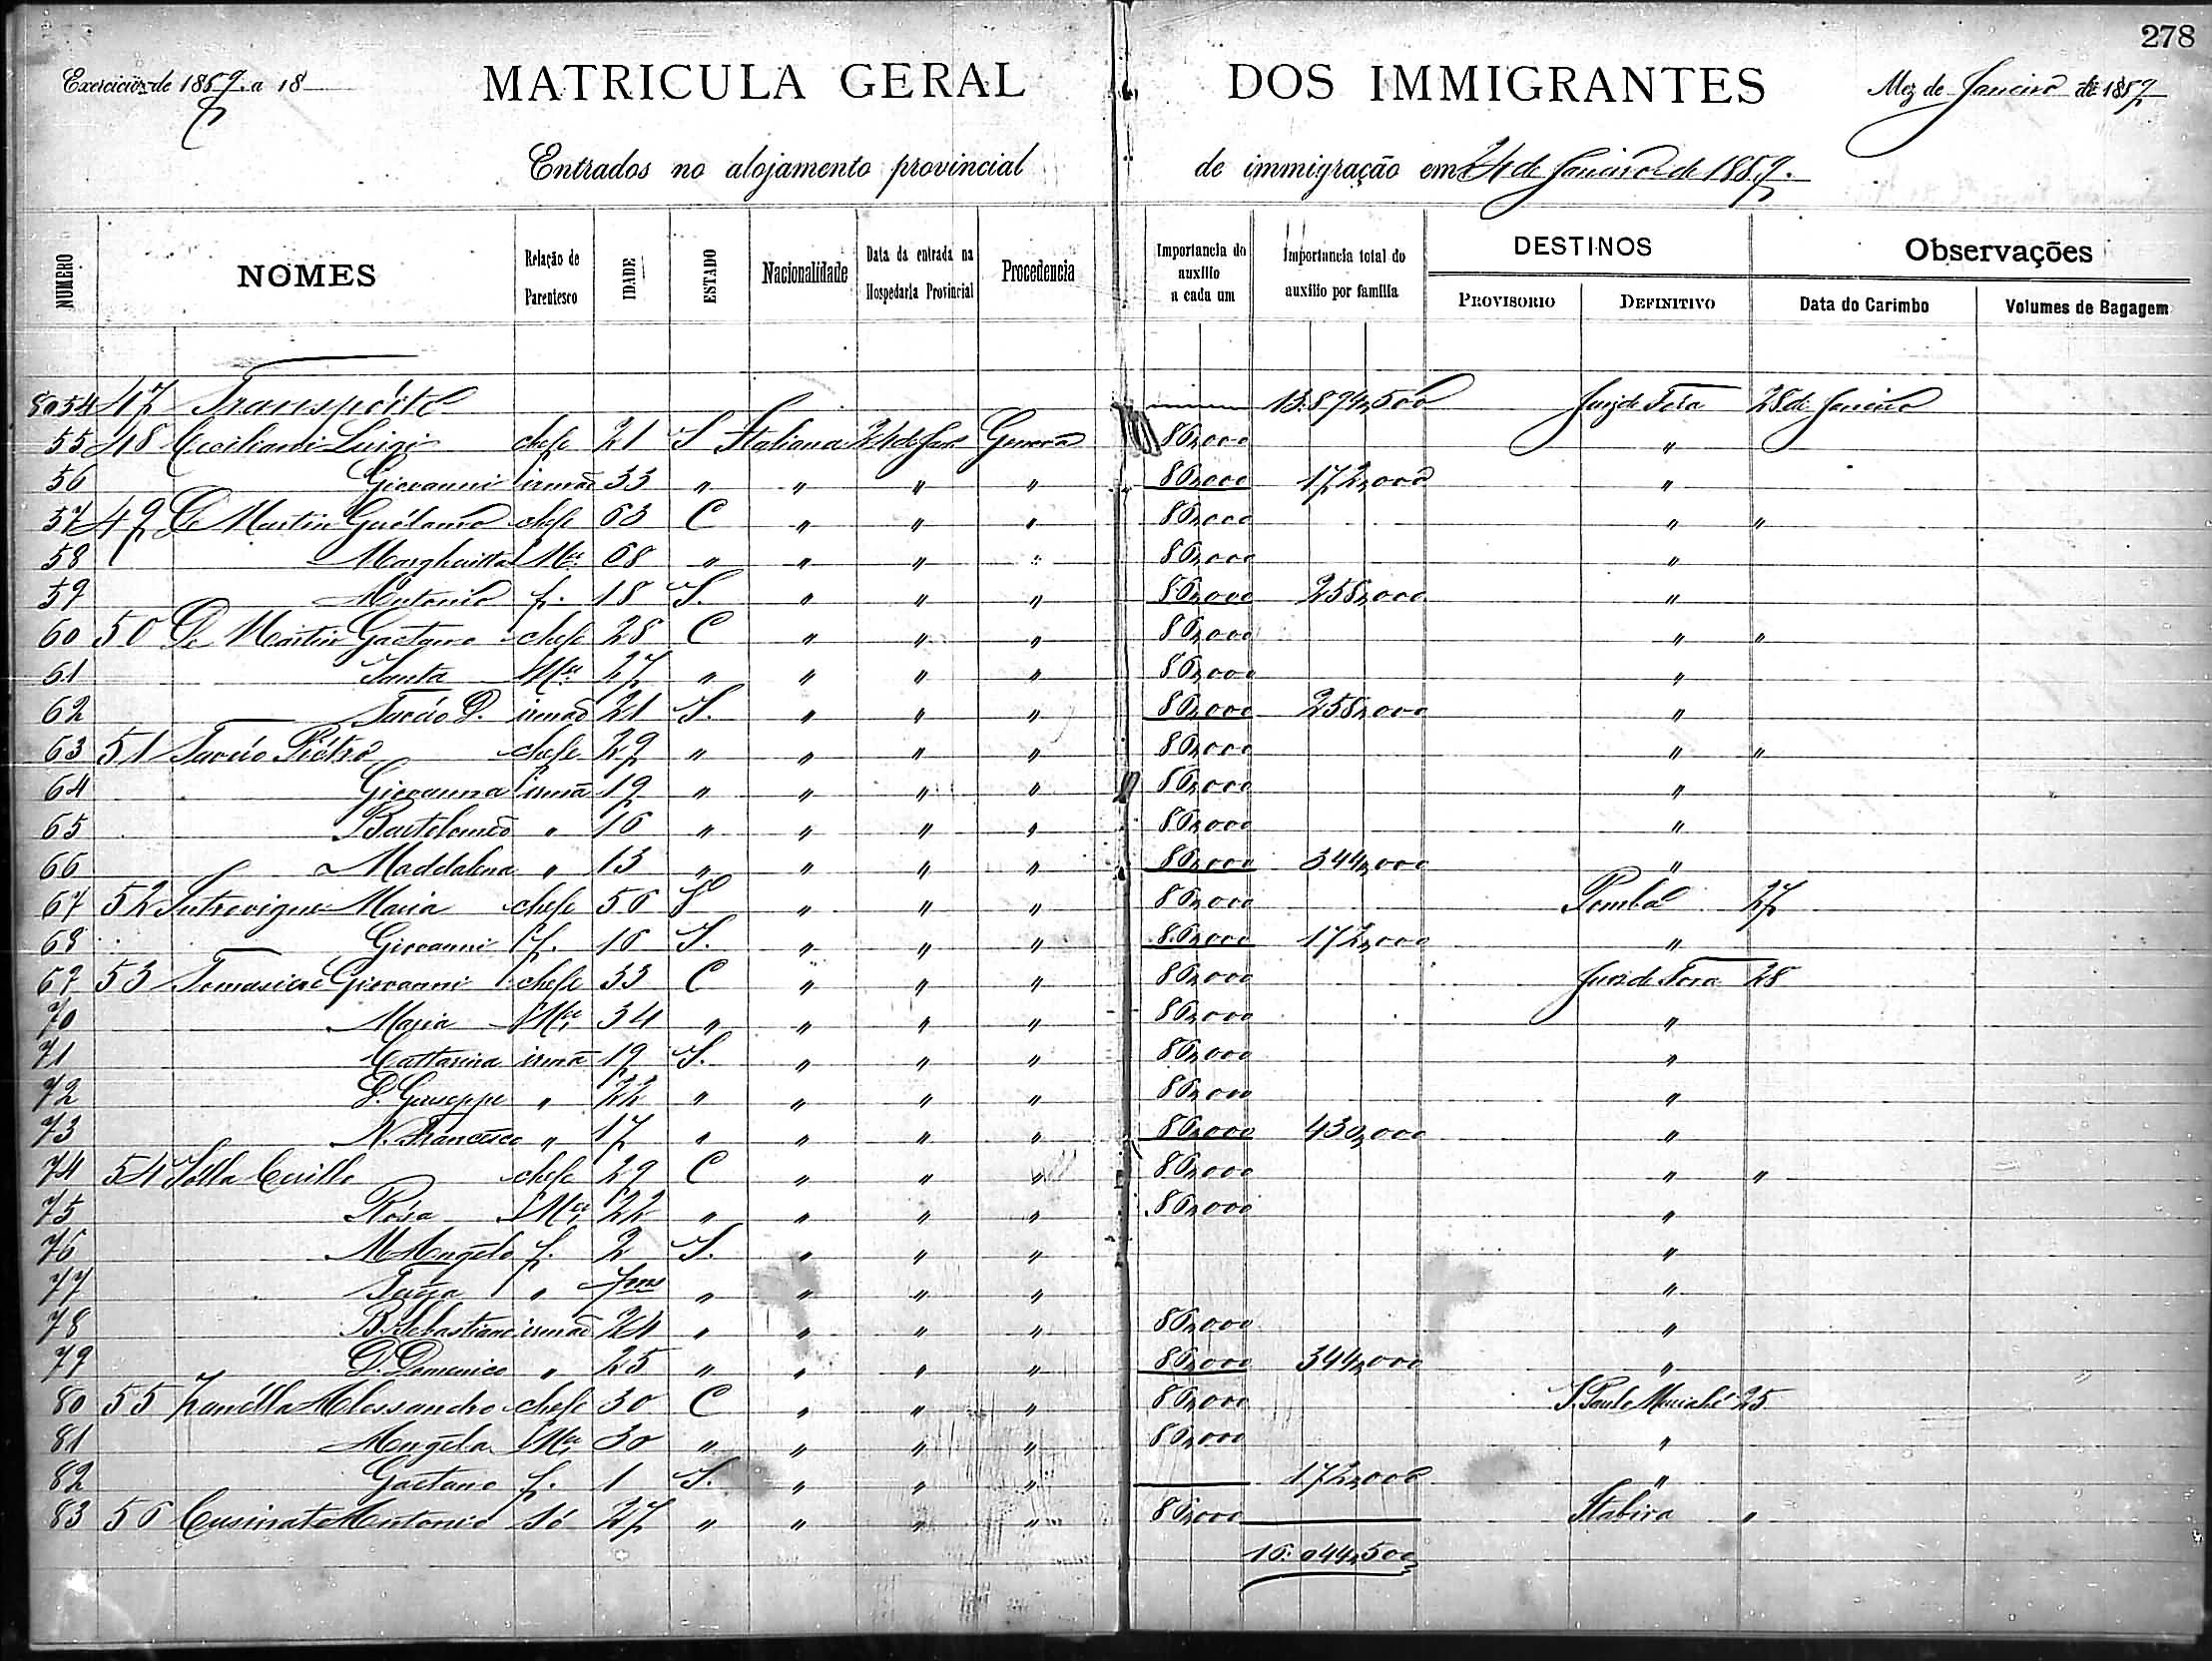 278
Exercicio de 1889 a 18
MATRICULA GERAL DOS IMMIGRANTES
Mez de Janeiro de 1889
Entrados no alojamento provincial de immigração em 24 de Janeiro de 1889.
NUMERO NOMES Relação de Parentesco IDADE ESTADO Nacionalidade Data da entrada na Hospedaria Provincial Procedencia Importancia do auxilio a cada um Importancia total do auxilio por familia DESTINOS PROVISORIO DEFINITIVO Observações Data do Carimbo Volumes de Bagagem
8054 47 Transpórte 13:894,500 Juiz de Fora 28 de Janeiro
55 48 Ceciliani Luigi chefe 21 S Italiana 24 de Jan Genova 86,000 "
56 Giovanni irmão 33 " " " " 86,000 172,000 "
57 49 De Martin chefe 63 C " " " 86,000 " "
58 Margherita Mer 68 " " " " 86,000 "
59 Antonio f. 18 S. " " " 86,000 258,000 "
60 50 De Martin Gaetano chefe 28 C " " " 86,000 " "
61 Santa Mer 27 " " " " 86,000 "
62 D. irmão 21 S. " " " 86,000 258,000 "
63 51 Piétro chefe 29 " " " " 86,000 " "
64 Giovanna irmã 19 " " " " 86,000 "
65 Bartolomeo " 16 " " " " 86,000 "
66 Maddalena " 13 " " " " 86,000 344,000 "
67 52 Maria chefe 56 " " " 86,000 Pomba 27
68 Giovanni f. 16 S. " " " 86,000 172,000 "
69 53 Giovanni chefe 33 C " " " 86,000 Juiz de Fora 28
70 Maria Mer 34 " " " " 86,000 "
71 Cattarina irmã 19 S. " " " 86,000 "
72 G. Giuseppe " 22 " " " " 86,000 "
73 N. Francesco " 17 " " " " 86,000 430,000 "
74 54 chefe 29 C " " " 86,000 " "
75 Rosa Mer 22 " " " " 86,000 "
76 M Angelo f. 2 S. " " " "
77 " 7 mes " " " " "
78 B. Sebastiano irmão 24 " " " " 86,000 "
79 D. Domenico " 25 " " " " 86,000 344,000 "
80 55 Zanélla Alessandro chefe 30 C " " " 86,000 S. Paulo Muriahé 25
81 Angela Mer 30 " " " " 86,000 "
82 Gaetano f. 1 S. " " " 172,000 "
83 56 Cusinato Antonio Só 27 " " " " 86,000 Itabira "
16:044,500